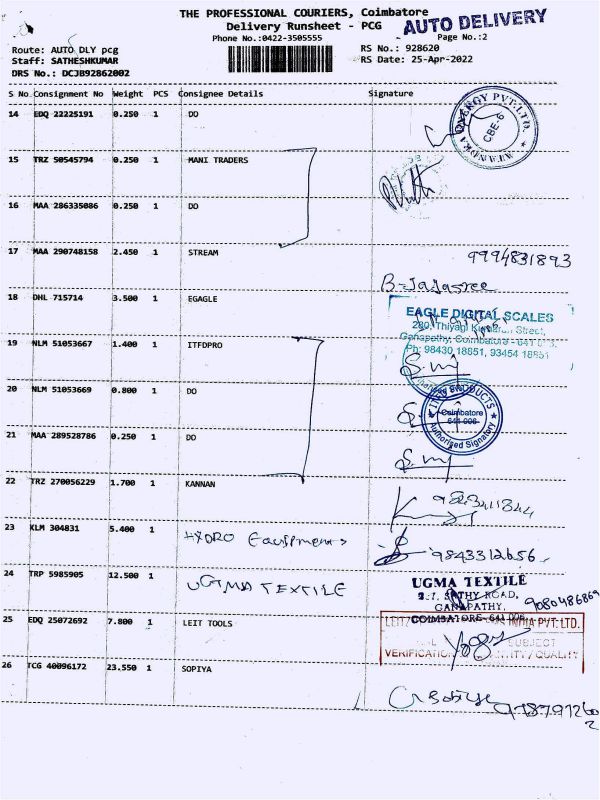 THE PROFESSIONAL COURIERS, Coimbatore
Delivery Runsheet - PCG
AUTO DELIVERY
Phone No.:0422-3505555
Page No.:2
Route: AUTO DLY pcg
RS No.: 928620
Staff: SATHESHKUMAR
RS Date: 25-Apr-2022
DRS No.: DCJB92862002
S No Consignment No Weight PCS Consignee Details Signature
14 EDQ 22225191 0.250 1 DO
ENERGY PVT.LTD.
CBE-6
15 TRZ 50545794 0.250 1 MANI TRADERS
16 MAA 286335086 0.250 1 DO
17 MAA 290748158 2.450 1 STREAM
9994831893
B-Jajasree
18 DHL 715714 3.500 1 EGAGLE
EAGLE DIGITAL SCALES
280, Thiyagi Kumaran Street,
Ganapathy, Coimbatore - 641 0
Ph: 98430 18851, 93454 18851
19 NLM 51053667 1.400 1 ITFDPRO
20 NLM 51053669 0.800 1 DO
Coimbatore
641 006
Authorised Signatory
21 MAA 289528786 0.250 1 DO
22 TRZ 270056229 1.700 1 KANNAN
23 KLM 304831 5.400 1 HYDRO Equipments
9843312656
24 TRP 5985905 12.500 1 UGMA TEXTILE
UGMA TEXTILE
SATHY ROAD,
GANAPATHY,
COIMBATORE-641 006
9080486869
25 EDQ 25072692 7.800 1 LEIT TOOLS
LEIT INDIA PVT.LTD.
SUBJECT
VERIFICATION QUALITY
26 TCG 40096172 23.550 1 SOPIYA